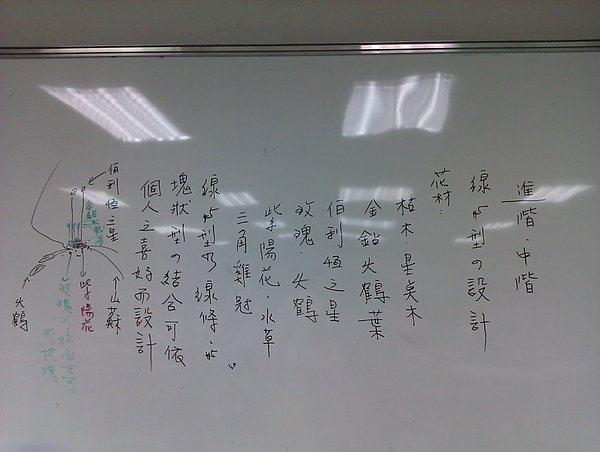 進階.中階
線的型の設計
花材:
枯木.星点木
金鉛火鶴葉
伯利恆之星
玫瑰.火鶴
紫陽花.水草
三角雞冠
線的型乃線條.的
塊狀型の結合可依
個人之喜好而設計.
伯利恆之星
山蘇
紫陽花
火鶴